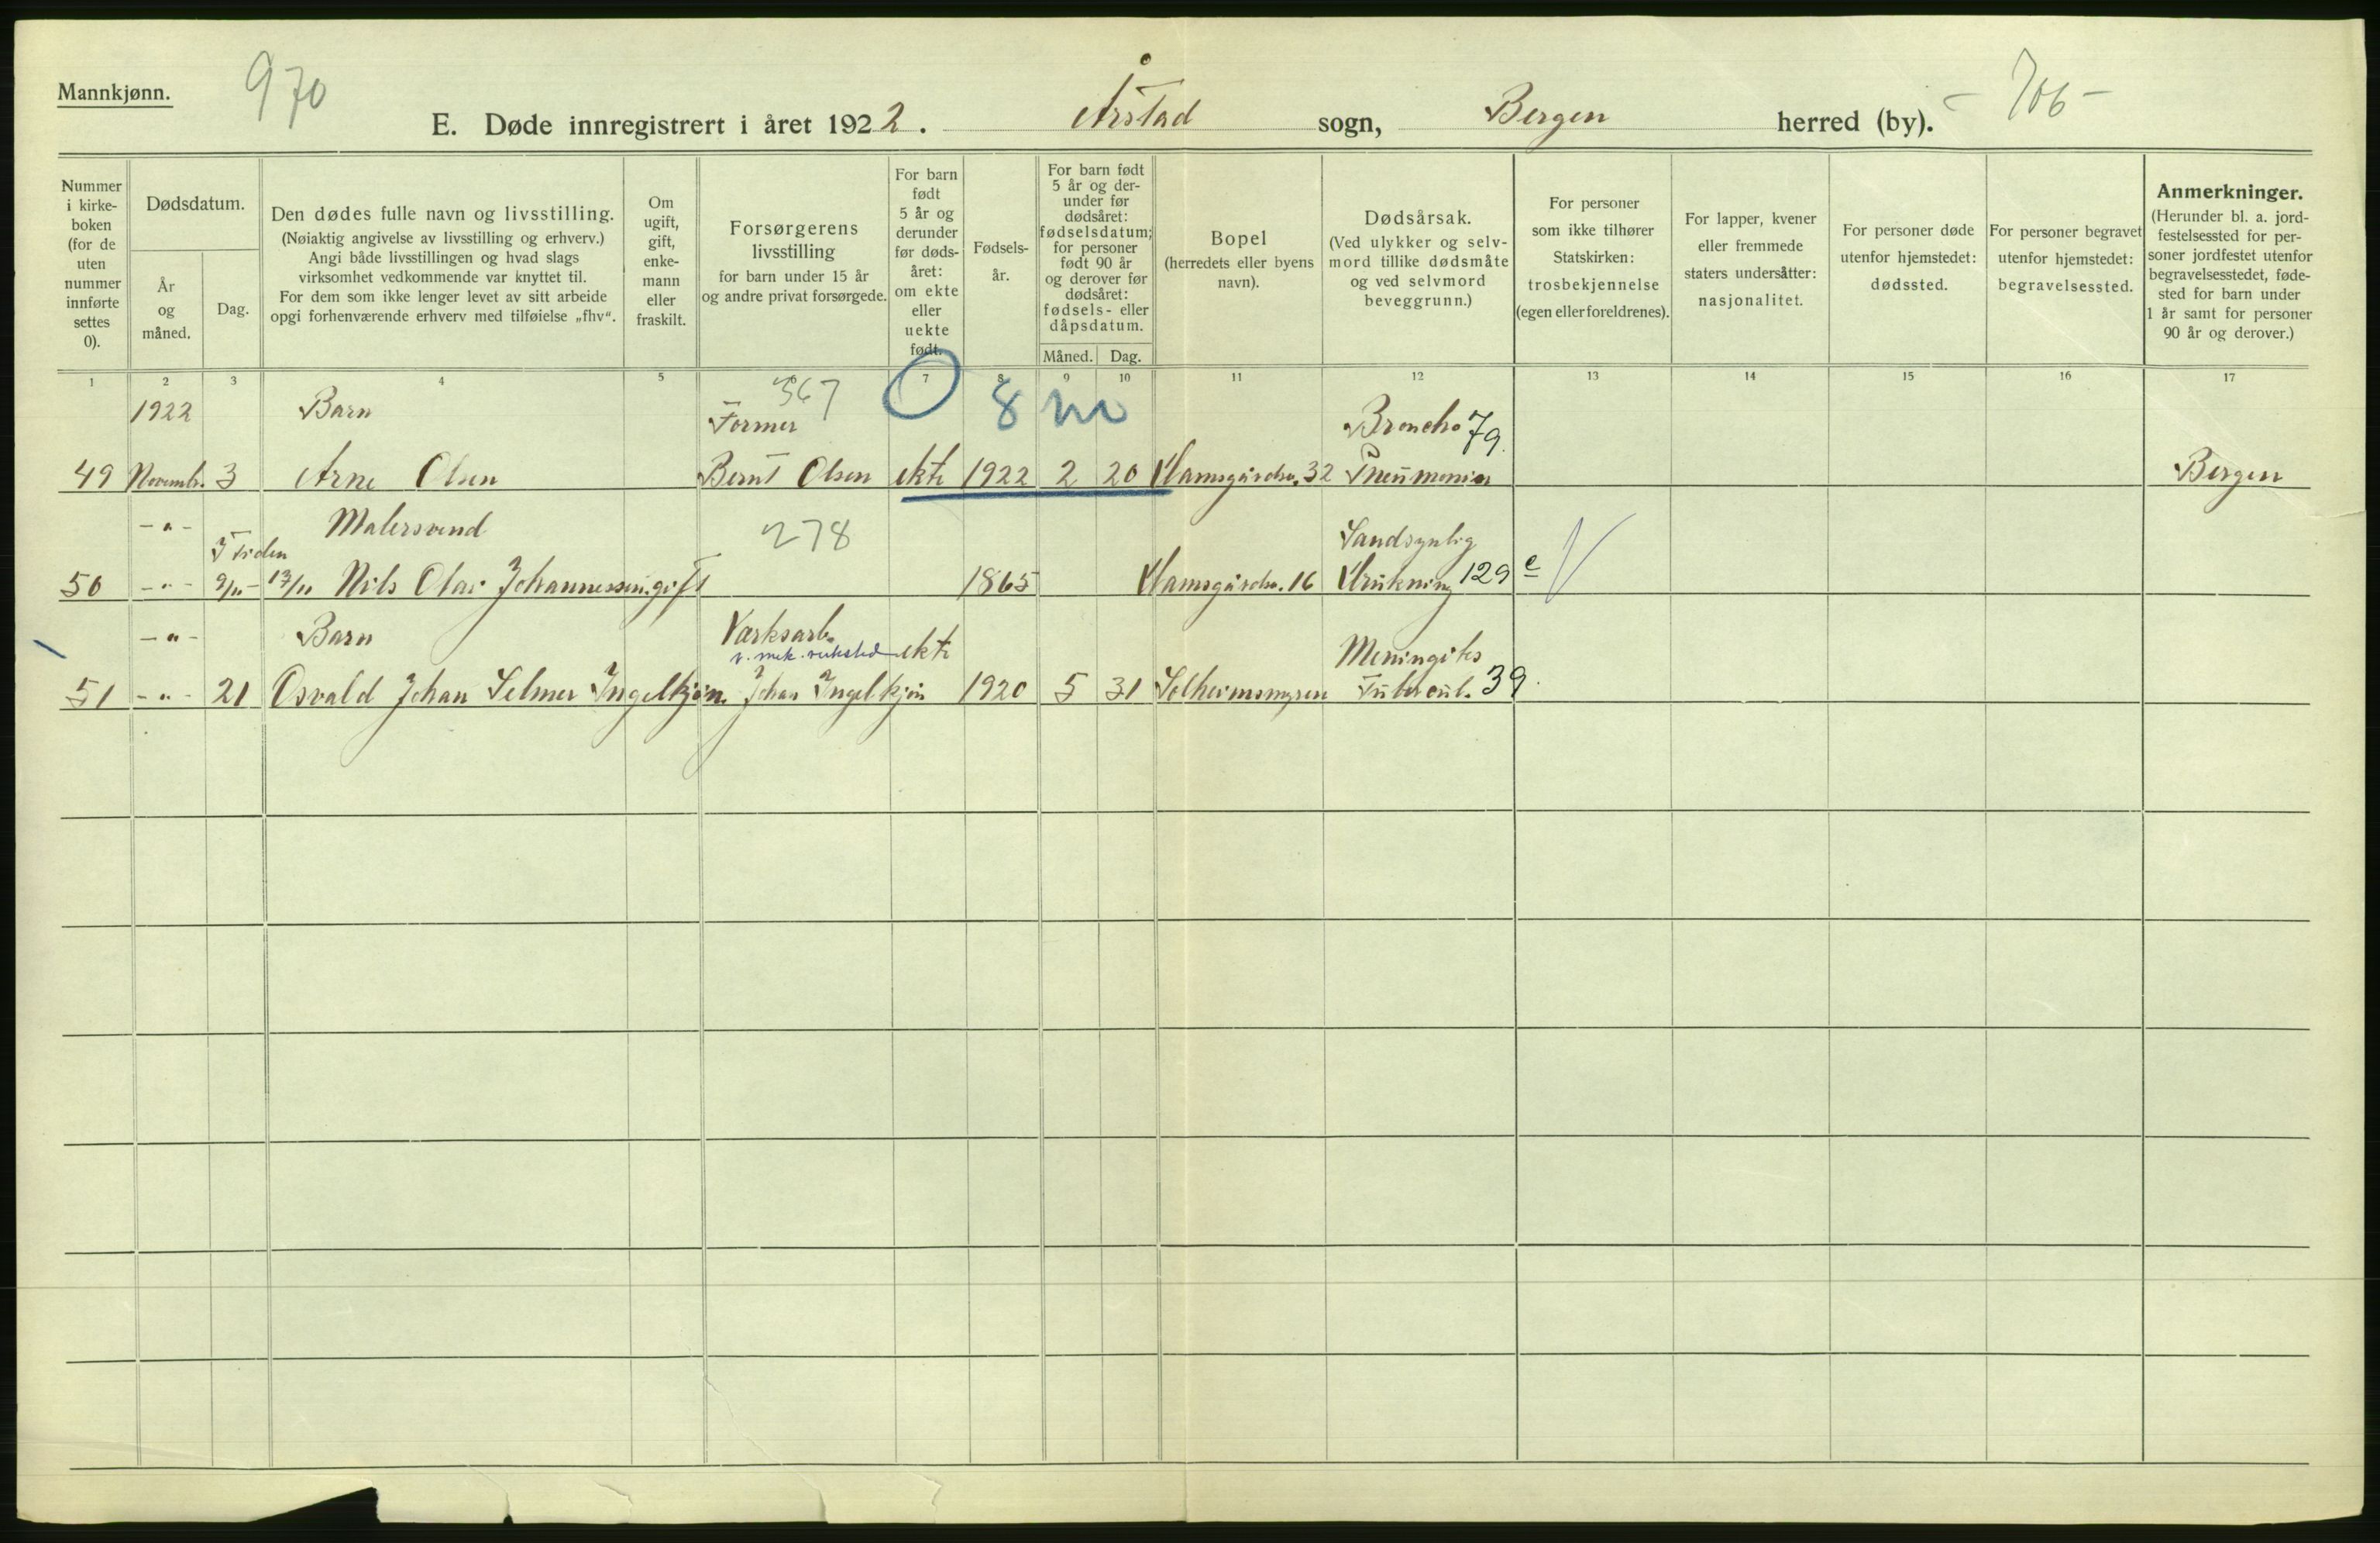 Mannkjønn.
970
E. Døde innregistrert i året 1922. Årstad sogn, Bergen herred (by). - 706 -
Nummer
i kirke-
boken
(for de
uten
nummer
innførte
settes
0).
Dødsdatum.
År
og
måned.
Dag.
Den dødes fulle navn og livsstilling.
(Nøiaktig angivelse av livsstilling og erhverv.)
Angi både livsstillingen og hvad slags
virksomhet vedkommende var knyttet til.
For dem som ikke lenger levet av sitt arbeide
opgi forhenværende erhverv med tilføielse „fhv“.
Om
ugift,
gift,
enke-
mann
eller
fraskilt.
Forsørgerens
livsstilling
for barn under 15 år
og andre privat forsørgede.
For barn
født
5 år og
derunder
før døds-
året:
om ekte
eller
uekte
født.
Fødsels-
år.
For barn født
5 år og der-
under før
dødsåret:
fødselsdatum;
for personer
født 90 år
og derover før
dødsåret:
fødsels- eller
dåpsdatum.
Måned. Dag.
Bopel
(herredets eller byens
navn).
Dødsårsak.
(Ved ulykker og selv-
mord tillike dødsmåte
og ved selvmord
beveggrunn.)
For personer
som ikke tilhører
Statskirken:
trosbekjennelse
(egen eller foreldrenes).
For lapper, kvener
eller fremmede
staters undersåtter:
nasjonalitet.
For personer døde
utenfor hjemstedet:
dødssted.
For personer begravet
utenfor hjemstedet:
begravelsessted.
Anmerkninger.
(Herunder bl. a. jord-
festelsessted for per-
soner jordfestet utenfor
begravelsesstedet, føde-
sted for barn under
1 år samt for personer
90 år og derover.)
1 2 3 4 5 6 7 8 9 10 11 12 13 14 15 16 17
1922 Barn Former 367 8 m Broncho 79.
49 Novembr. 3 Arne Olsen Bernt Olsen ekte 1922 2 20 32 Pneumonia Bergen
- " - I Tiden Malersvend 278 Sandsynlig
50 - " - 9/11 - 13/11 Nils Olai Johannessen gift 1865 16 Drukning 129 e
- " - Barn Værksarb. ekte Meningitis
v. mek. verksted
51 - " - 21 Osvald Johan Selmer Ingelkjøn. Johan Ingelkjøn 1920 5 31 Solheimsmyren Tubercul. 39.